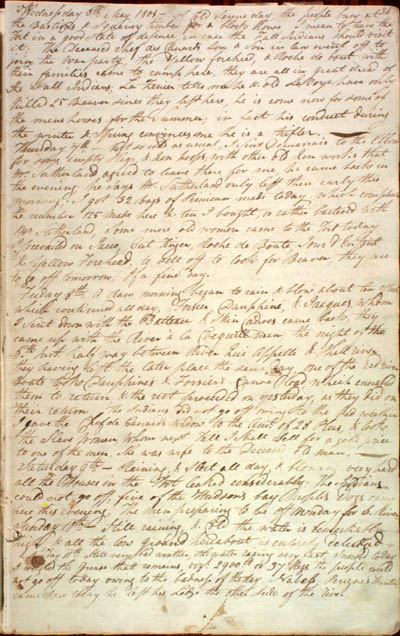 Wednesday 6th May 1805 — Cold Serene day, the people busy at
the Bastions & squaring timber for a House I mean to have the
Fort in a good state of defence in case the fall Indians should visit
it. The Deceased chef de Canards Son & son in law went off to
join the War party. The Yellow forehead, & Roche de bout with
their families came to camp here, they are all in great dread of
the fall Indians. La tells me he & old have only
killed 25 Beaver since they left here, he is come now for some of
the mens horses for the Summer, in fact his conduct during
the winter & Spring convinces me he is a trifler.
Thursday 7th as usual, I sent Desmarais to the Elbow
for some empty Kegs, & Iron hoops with other old Iron works that
Mr Sutherland agreed to leave there for me, he came back in
the evening, he says Mr Sutherland only left there early this
morning. I got 32 bags of Pemican made today, which completes
the number 125 made here & ten I bought or rather bartered with
Mr Sutherland. Some more old women came to the Fort today
I prevailed on Sacco, Cut finger, Roche de Boute
& Yellow Forehead to sett off to look for Beaver they are
to go off tomorrow. A fine day.
Friday 8th A raw morning, began to rain & blow about ten
which continued all day, Fortier, Dauphine, & Jacques whom
I sent down with the Batteau & Skin Canoes came back, they
came up with the River a la Coquille men the night of the
6th not half way between River Qui Appelle & Shell river
they having left the later place the same day, one of the red river
Boats took Dauphines & Forciers Canoe load which enabled
them to return & the rest proceeded on yesterday, as they did on
their return. The Indians did not go off owing to the bad weather
I gave the Chef de Canards widow to the amt. of 20 Plus, & took
the Slave Woman, whom next fall I shall Sell for a good price
to one of the men, she was wife to the Deceased old man.
Saturday 9th — Raining, & Sleet all day, & blowing very hard
all the Houses in the Fort leaked considerably, the Indians
could not go off, five of the Hudsons bay Peoples Dogs came
here this evening, the men preparing to be off Monday for
Sunday 10th — Still raining, & Cold the water is
high, & all the low ground hereabout is entirely
Monday 11th Still very bad weather, the water raging very fast,
I weighed the Grease that remains, vizt. 2900 lb or 37 Kegs the people could
not go off today owing to the badness of the day
came here today he left his Lodge the other side of the river.